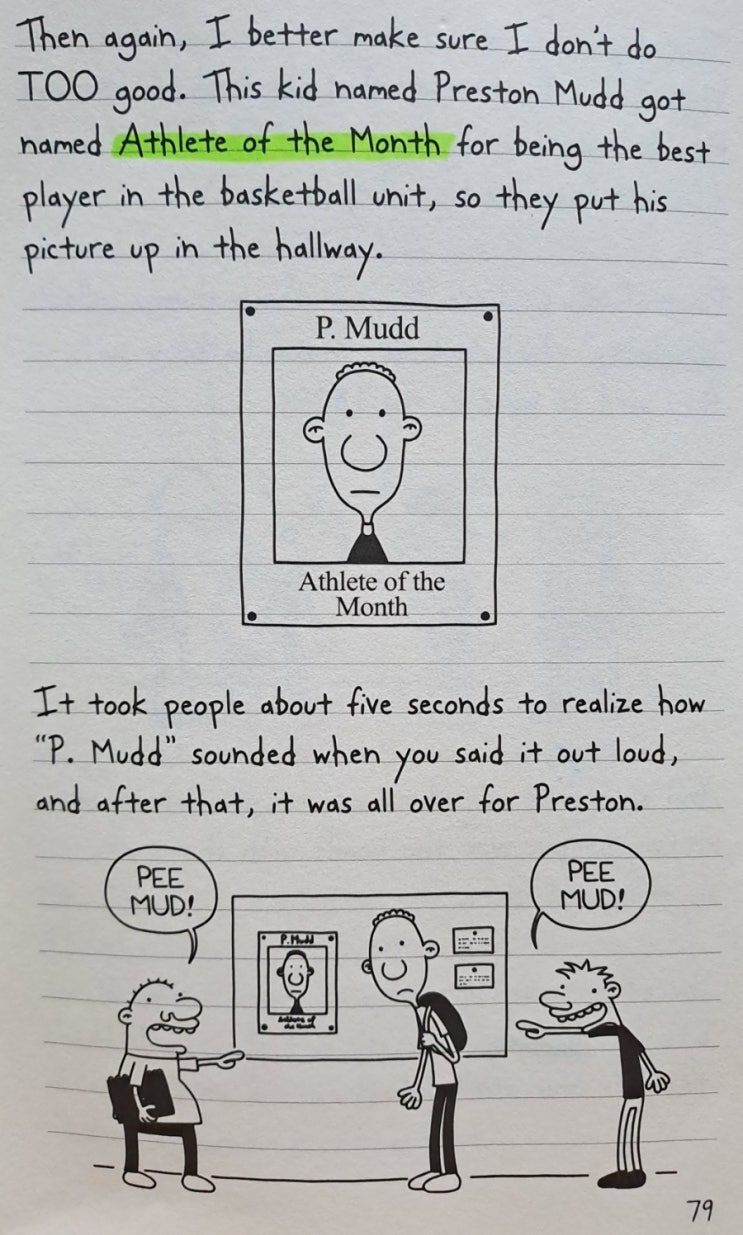 Then again, I better make sure I don't do
TOO good. This kid named Preston Mudd got
named Athlete of the Month for being the best
player in the basketball unit, so they put his
picture up in the hallway.
P. Mudd
Athlete of the
Month
It took people about five seconds to realize how
"P. Mudd" sounded when you said it out loud,
and after that, it was all over for Preston.
PEE
MUD!
PEE
MUD!
P. Mudd
Athlete of
the Month
79